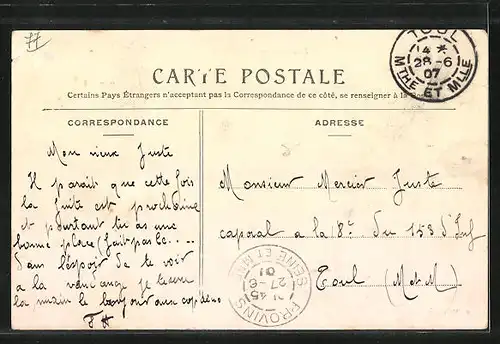 77
TOUL
4 *
28-6
07
MTHE ET MLLE
CARTE POSTALE
Certains Pays Étrangers n'acceptant pas la Correspondance de ce côté, se renseigner à la
CORRESPONDANCE
ADRESSE
Mon vieux Juste
Il parait que cette fois
la fuite est prochaine
et pourtant tu as une
bonne place (fait pas le....
Dans l'espoir de te voir
a la vendange je te serre
la main le bonjour aux copains
Monsieur Mercier Juste
caporal a la 8e du 153 d'Inf
Toul (M et M)
PROVINS
45
27-6
07
SEINE ET MNE